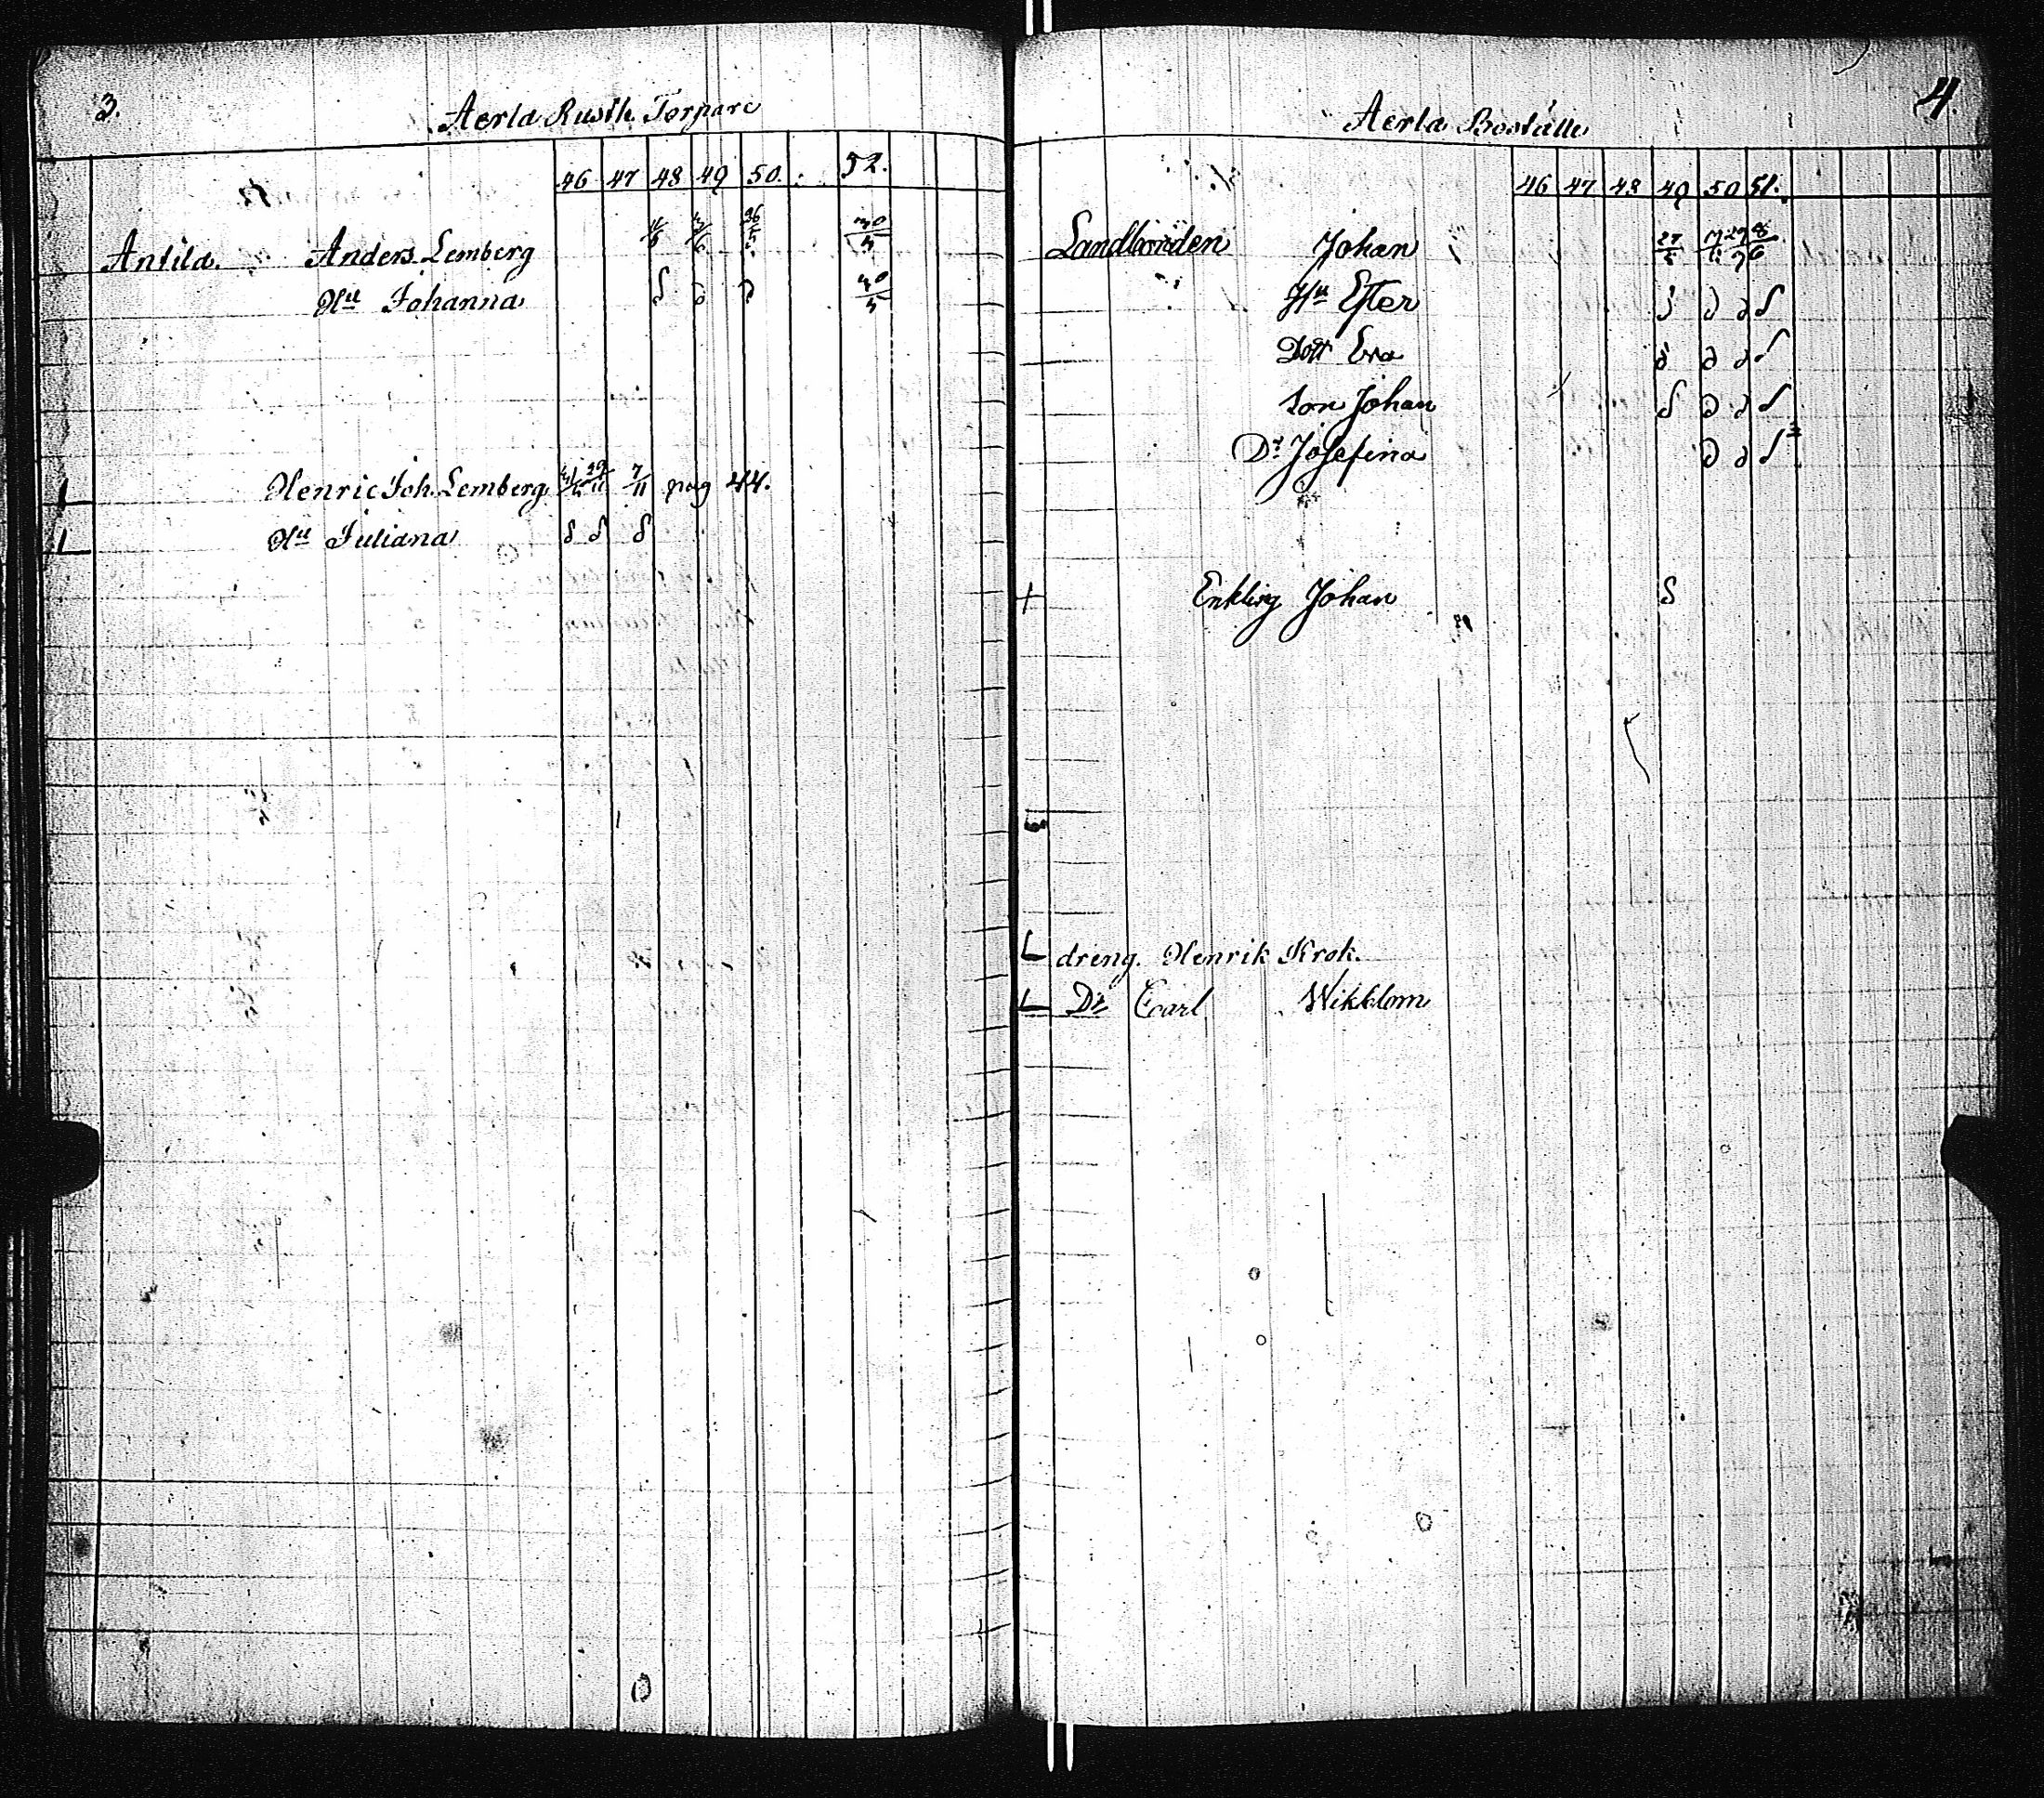 3.
Aerla Rusth. Torpare
46 47 48 49 50. 52.
Antila. Anders Lemberg 30/5
Hu Johanna
Henric Joh. Lemberg 7/11 pag 44.
Hu Juliana
4.
Aerla Boställe
46 47 48 49 50 51.
Landbonden Johan 27/5
Hu Ester
Dott Eva
Son Johan
Dr Josefina
Enkling Johan
dreng. Henrik Krok.
Dr Carl Wikblom